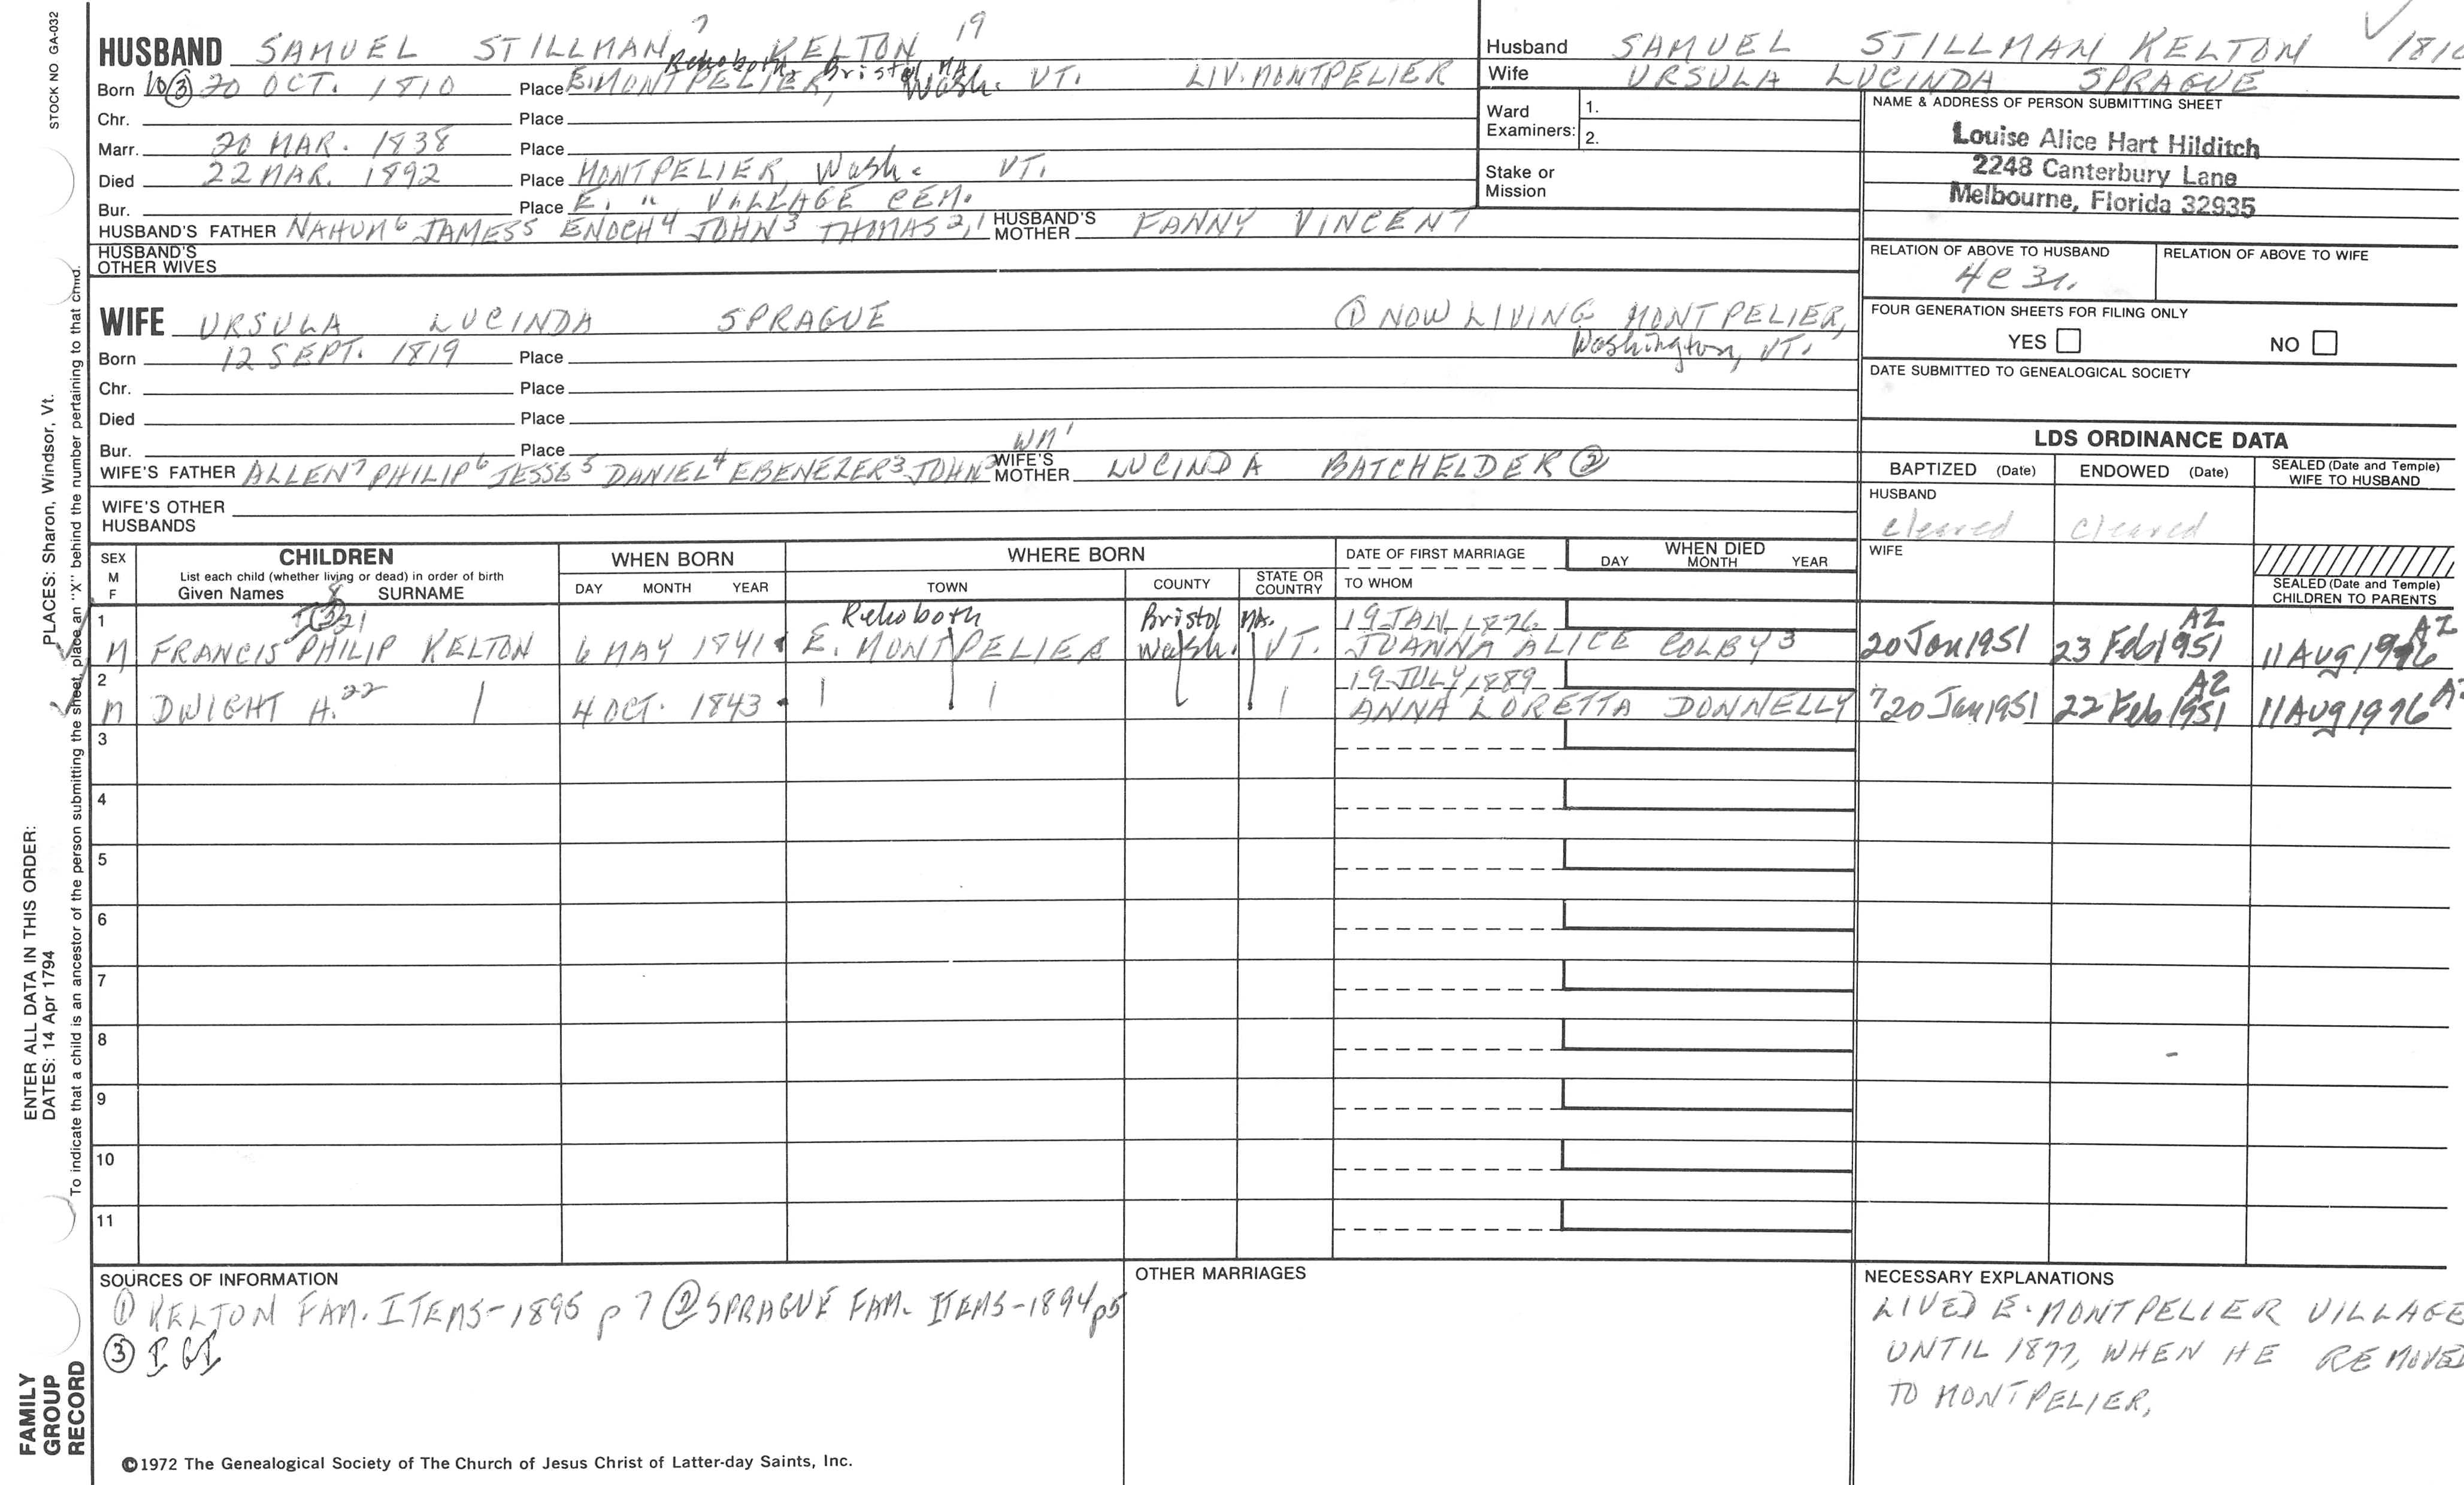 STOCK NO GA-032
HUSBAND SAMUEL STILLMAN 7 KELTON 19
Rehoboth, Bristol, MA.
Born 10 ③ 20 OCT. 1810 Place E. MONTPELIER, Wash. VT. LIV. MONTPELIER
Chr. Place
Marr. 20 MAR. 1838 Place
Died 22 MAR. 1892 Place MONTPELIER, Wash. VT.
Bur. Place E. " VILLAGE CEM.
HUSBAND'S FATHER NAHUM6 JAMES5 ENOCH4 JOHN3 THOMAS2,1 HUSBAND'S MOTHER FANNY VINCENT
HUSBAND'S OTHER WIVES
WIFE URSULA LUCINDA SPRAGUE ① NOW LIVING MONTPELIER,
Washington, VT.
Born 12 SEPT. 1819 Place
Chr. Place
Died Place
Bur. Place
WM1
WIFE'S FATHER ALLEN7 PHILIP6 JESSE5 DANIEL4 EBENEZER3 JOHN2 WIFE'S MOTHER LUCINDA BATCHELDER ②
WIFE'S OTHER HUSBANDS
Husband SAMUEL STILLMAN KELTON
Wife URSULA LUCINDA SPRAGUE
Ward Examiners: 1.
2.
Stake or Mission
NAME & ADDRESS OF PERSON SUBMITTING SHEET
Louise Alice Hart Hilditch
2248 Canterbury Lane
Melbourne, Florida 32935
RELATION OF ABOVE TO HUSBAND RELATION OF ABOVE TO WIFE
4C3r.
FOUR GENERATION SHEETS FOR FILING ONLY
YES NO
DATE SUBMITTED TO GENEALOGICAL SOCIETY
LDS ORDINANCE DATA
BAPTIZED (Date) ENDOWED (Date) SEALED (Date and Temple) WIFE TO HUSBAND
HUSBAND
cleared cleared
WIFE
SEALED (Date and Temple) CHILDREN TO PARENTS
SEX M F CHILDREN WHEN BORN WHERE BORN DATE OF FIRST MARRIAGE WHEN DIED
List each child (whether living or dead) in order of birth
Given Names 8 SURNAME DAY MONTH YEAR TOWN COUNTY STATE OR COUNTRY TO WHOM DAY MONTH YEAR
1 ③ 21 Rehoboth Bristol MA. 19 JAN. 1876 AZ AZ
M FRANCIS PHILIP KELTON 6 MAY 1841 E. MONTPELIER Wash. VT. JOANNA ALICE COLBY 3 20 Jan 1951 23 Feb 1951 11 Aug 1976
2 19 JULY 1889 AZ
M DWIGHT H. 22 4 OCT. 1843 ANNA LORETTA DONNELLY 7 20 Jan 1951 22 Feb 1951 11 Aug 1976
3
4
5
6
7
8
9
10
11
SOURCES OF INFORMATION
① KELTON FAM. ITEMS-1895 p 7 ② SPRAGUE FAM. ITEMS-1894 p5
③ IGI
OTHER MARRIAGES
NECESSARY EXPLANATIONS
LIVED E. MONTPELIER VILLAGE
UNTIL 1877, WHEN HE REMOVED
TO MONTPELIER,
©1972 The Genealogical Society of The Church of Jesus Christ of Latter-day Saints, Inc.
FAMILY GROUP RECORD
ENTER ALL DATA IN THIS ORDER:
DATES: 14 Apr 1794 PLACES: Sharon, Windsor, Vt.
To indicate that a child is an ancestor of the person submitting the sheet, place an "X" behind the number pertaining to that child.